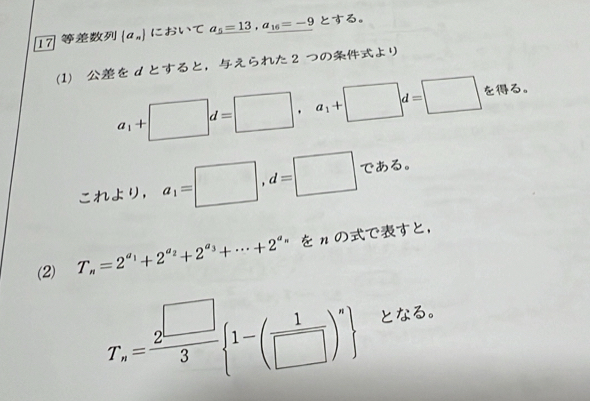 17 等差数列{aₙ}において a₅=13, a₁₆=-9 とする。
(1) 公差を d とすると, 与えられた2つの条件式より
a₁+□d=□, a₁+□d=□を得る。
これより, a₁=□, d=□である。
(2) Tₙ=2^{a₁}+2^{a₂}+2^{a₃}+⋯+2^{aₙ} を n の式で表すと,
Tₙ=2^□/3{1-(1/□)ⁿ} となる。